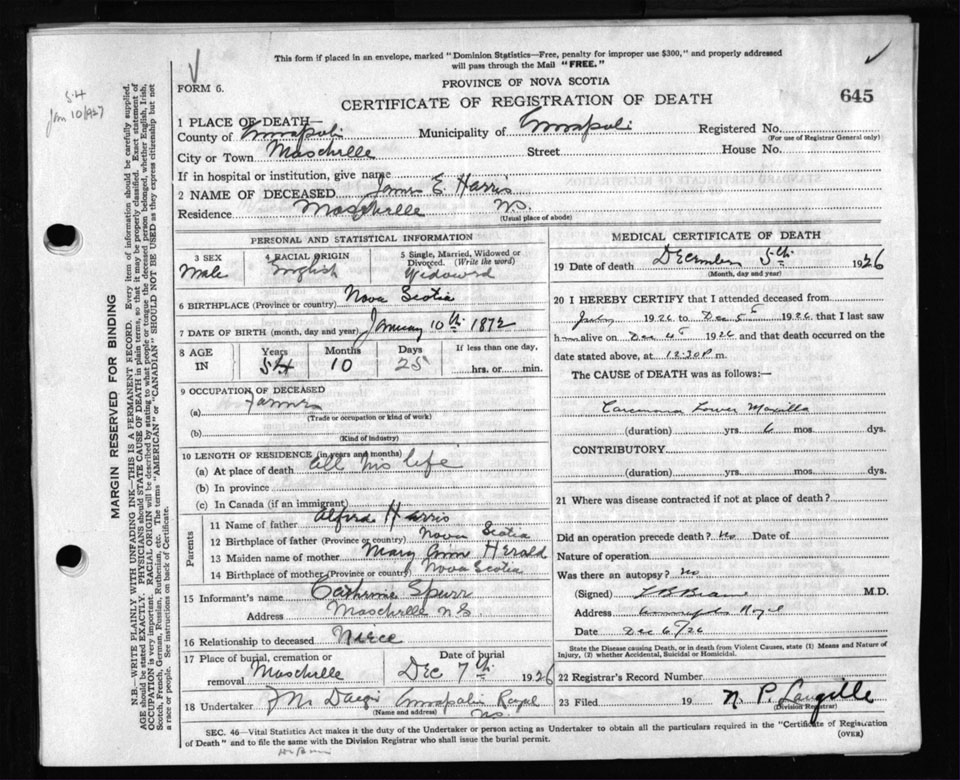 This form if placed in an envelope, marked "Dominion Statistics—Free, penalty for improper use $300," and properly addressed
will pass through the Mail "FREE."
FORM 6.
PROVINCE OF NOVA SCOTIA
CERTIFICATE OF REGISTRATION OF DEATH
645
Jan 10/1927
1 PLACE OF DEATH—
County of Annapolis Municipality of Annapolis Registered No.
(For use of Registrar General only)
City or Town Maschelle Street House No.
If in hospital or institution, give name
2 NAME OF DECEASED James E. Harris
Residence Maschelle N.S.
(Usual place of abode)
PERSONAL AND STATISTICAL INFORMATION
3 SEX Male
4 RACIAL ORIGIN English
5 Single, Married, Widowed or
Divorced. (Write the word)
Widowed
6 BIRTHPLACE (Province or country) Nova Scotia
7 DATE OF BIRTH (month, day and year) January 10th 1872
8 AGE IN
Years 54 Months 10 Days 25
If less than one day,
hrs. or min.
9 OCCUPATION OF DECEASED
(a) Farmer
(Trade or occupation or kind of work)
(b)
(Kind of industry)
10 LENGTH OF RESIDENCE (in years and months)
(a) At place of death all his life
(b) In province
(c) In Canada (if an immigrant)
Parents
11 Name of father Alfred Harris
12 Birthplace of father (Province or country) Nova Scotia
13 Maiden name of mother Mary Ann Herald
14 Birthplace of mother (Province or country) Nova Scotia
15 Informant's name Catherine Spurr
Address Maschelle N.S.
16 Relationship to deceased Niece
17 Place of burial, cremation or
removal Maschelle
Date of burial
Dec 7th 1926
18 Undertaker Annapolis Royal
(Name and address) N.S.
MEDICAL CERTIFICATE OF DEATH
19 Date of death December 5th 1926
(Month, day and year)
20 I HEREBY CERTIFY that I attended deceased from
July 1926 to Dec 5th 1926 that I last saw
him alive on Dec 4th 1926 and that death occurred on the
date stated above, at 12:30 P m.
The CAUSE of DEATH was as follows:—
Carcinoma Lower Maxilla
(duration) yrs. 6 mos. dys.
CONTRIBUTORY
(duration) yrs. mos. dys.
21 Where was disease contracted if not at place of death?
Did an operation precede death? No Date of
Nature of operation
Was there an autopsy? No
(Signed) M.D.
Address Annapolis Royal
Date Dec 6/26
State the Disease causing Death, or in death from Violent Causes, state (1) Means and Nature of
Injury, (2) whether Accidental, Suicidal or Homicidal.
22 Registrar's Record Number
23 Filed 19 N. P. Langille
(Division Registrar)
SEC. 46—Vital Statistics Act makes it the duty of the Undertaker or person acting as Undertaker to obtain all the particulars required in the "Certificate of Registration
of Death" and to file the same with the Division Registrar who shall issue the burial permit.
(OVER)
MARGIN RESERVED FOR BINDING
N.B.—WRITE PLAINLY WITH UNFADING INK—THIS IS A PERMANENT RECORD. Every item of information should be carefully supplied.
AGE should be stated EXACTLY. PHYSICIANS should STATE CAUSE OF DEATH in plain terms, so that it may be properly classified. Exact statement of
OCCUPATION is very important. RACIAL ORIGIN will be described by stating to what people or tongue the deceased person belonged, whether English, Irish,
Scotch, French, German, Russian, Ruthenian, etc. The terms "AMERICAN" or "CANADIAN" SHOULD NOT BE USED as they express citizenship but not
a race or people. See instructions on back of Certificate.